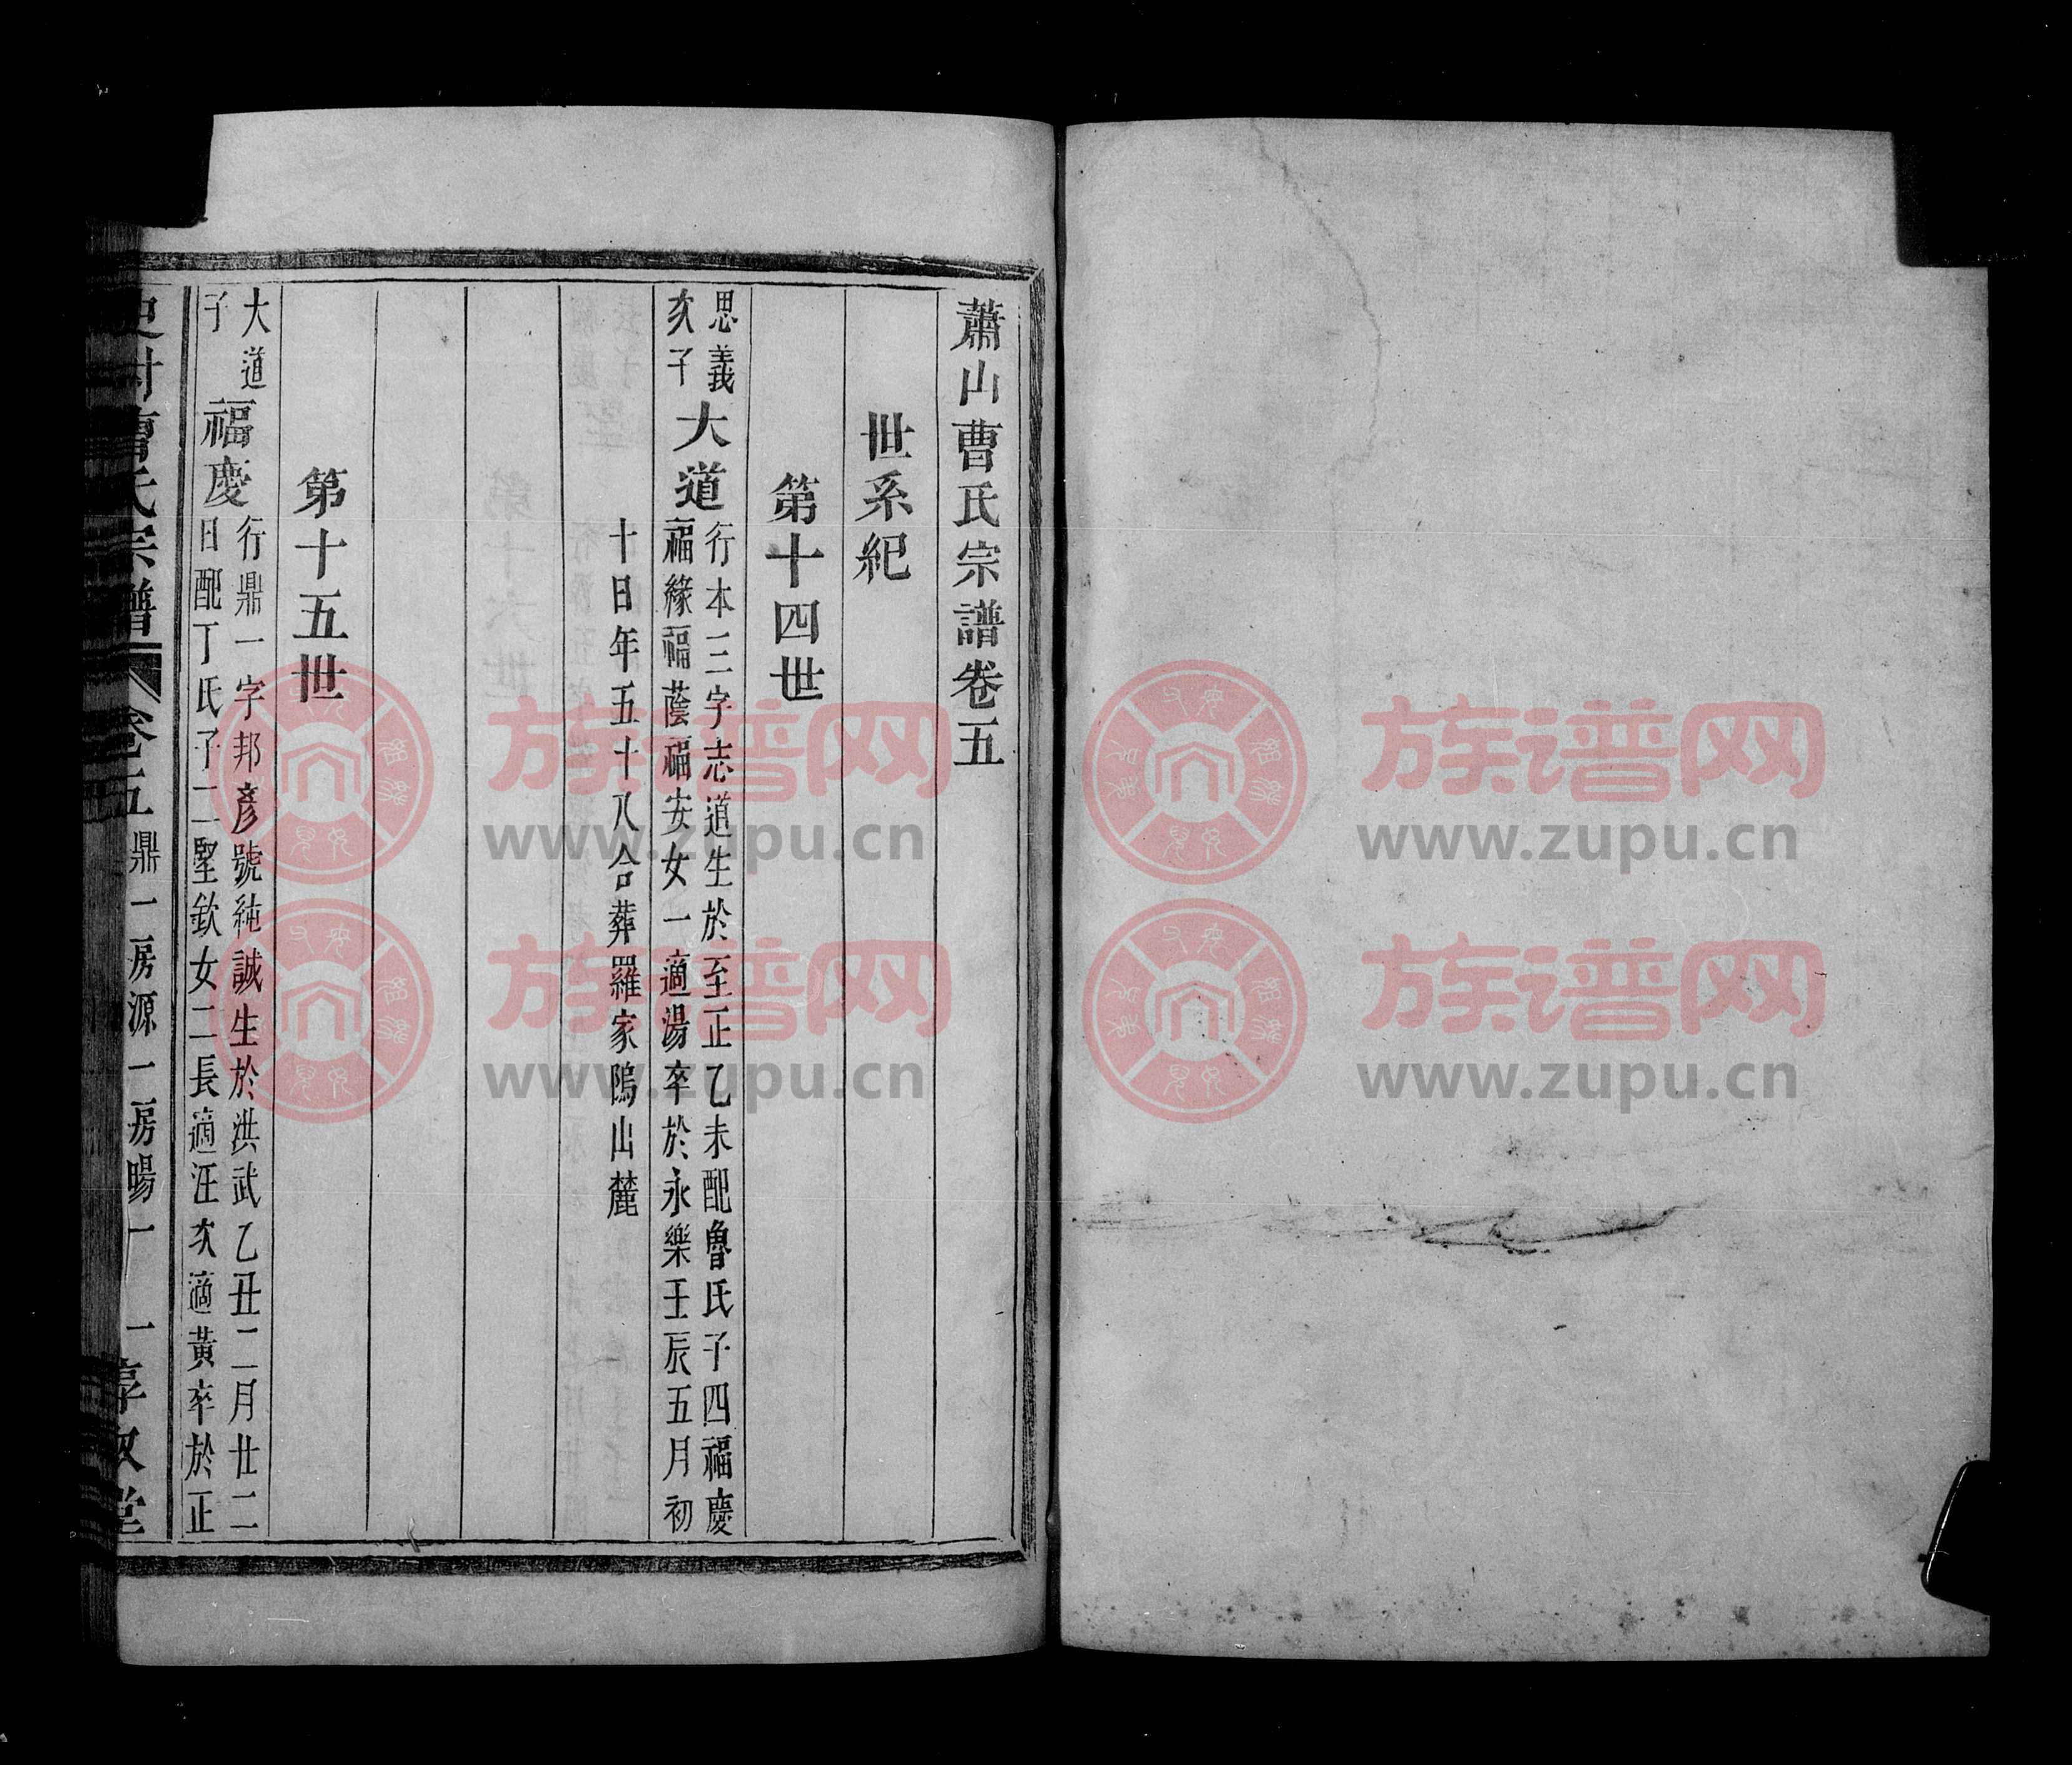 蕭山曹氏宗譜卷五
世系紀
第十四世
思義
次子
大道
行本三字志道生於至正乙未配魯氏子四福慶
福緣福蔭福安女一適湯卒於永樂壬辰五月初
十日年五十八合葬羅家隖山麓
第十五世
大道
子
福慶
行鼎一字邦彥號純誠生於洪武乙丑二月廿二
日配丁氏子二堅欽女二長適汪次適黃卒於正
史村曹氏宗譜
卷五
鼎一房源一房暘一
一
惇敘堂
族谱网
www.zupu.cn
族谱网
www.zupu.cn
族谱网
www.zupu.cn
族谱网
www.zupu.cn